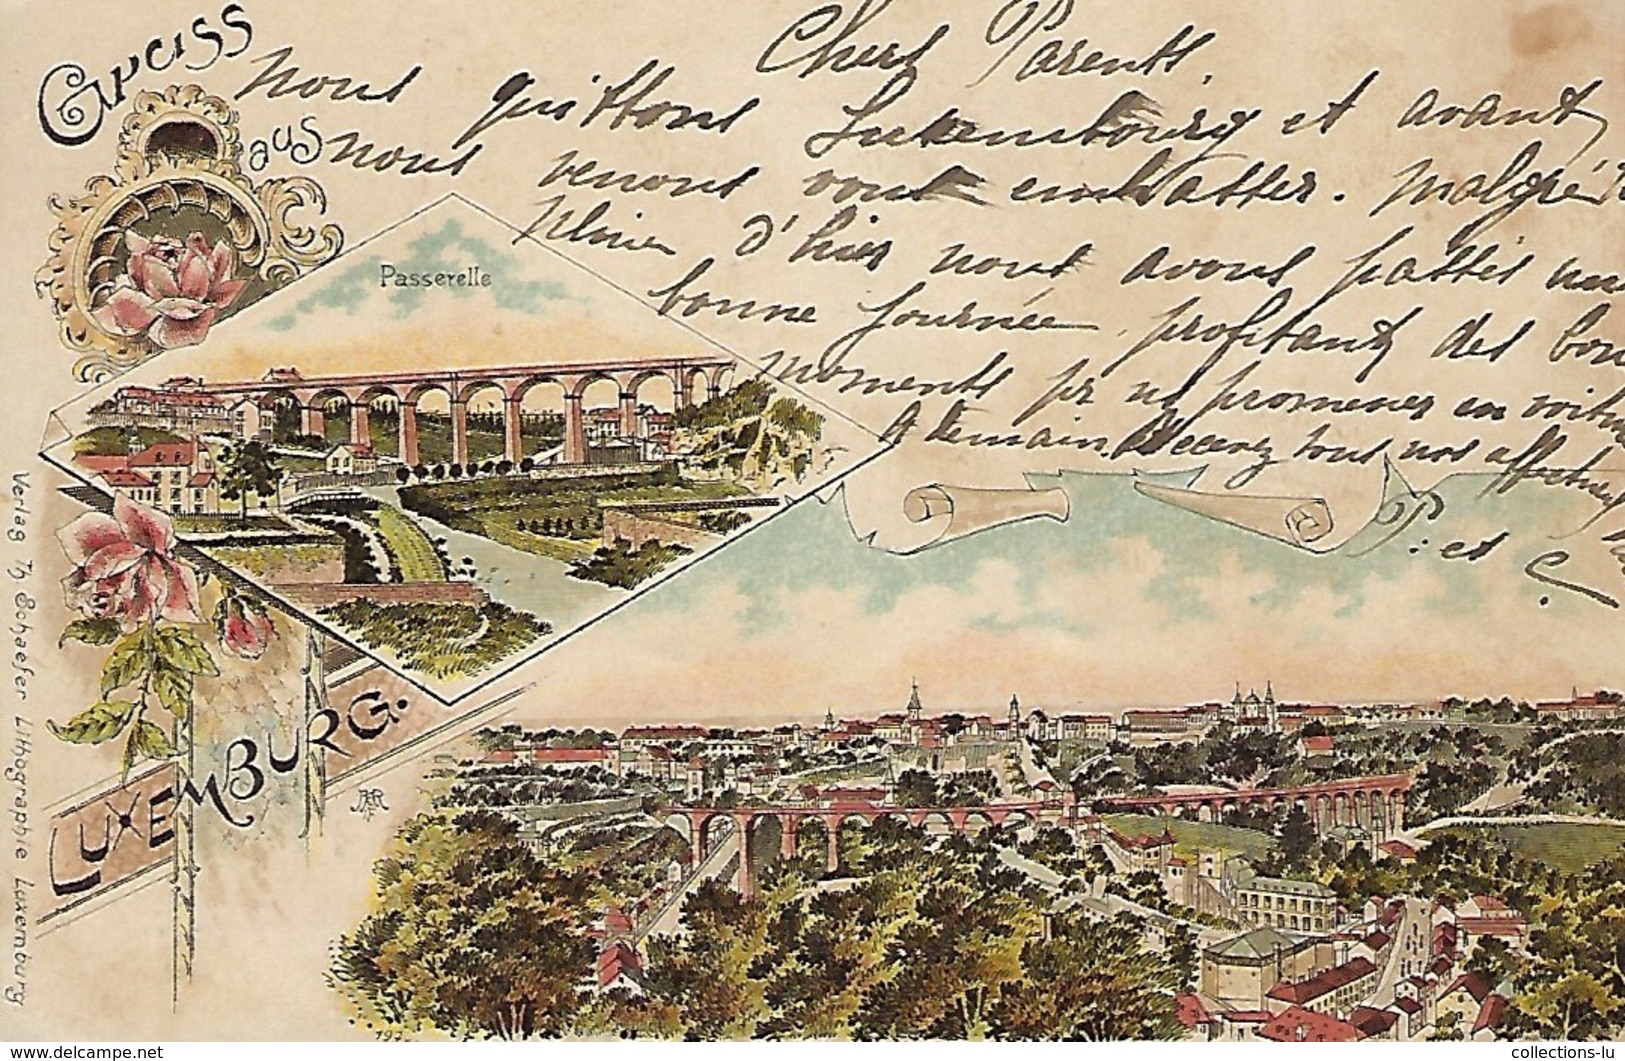 Gruss
aus
LUXEMBURG.
Passerelle
Chers Parents,
Nous quittons Luxembourg et avant
nous venons vous embrasser. Malgré
pluie d'hier nous avons passés un
bonne journée profitant des bons
moments pr ns promener en voiture
A demain Recevez tous nos affectueux
P. et C.
Verlag Th. Schaefer Lithographie Luxemburg.
collections-lu